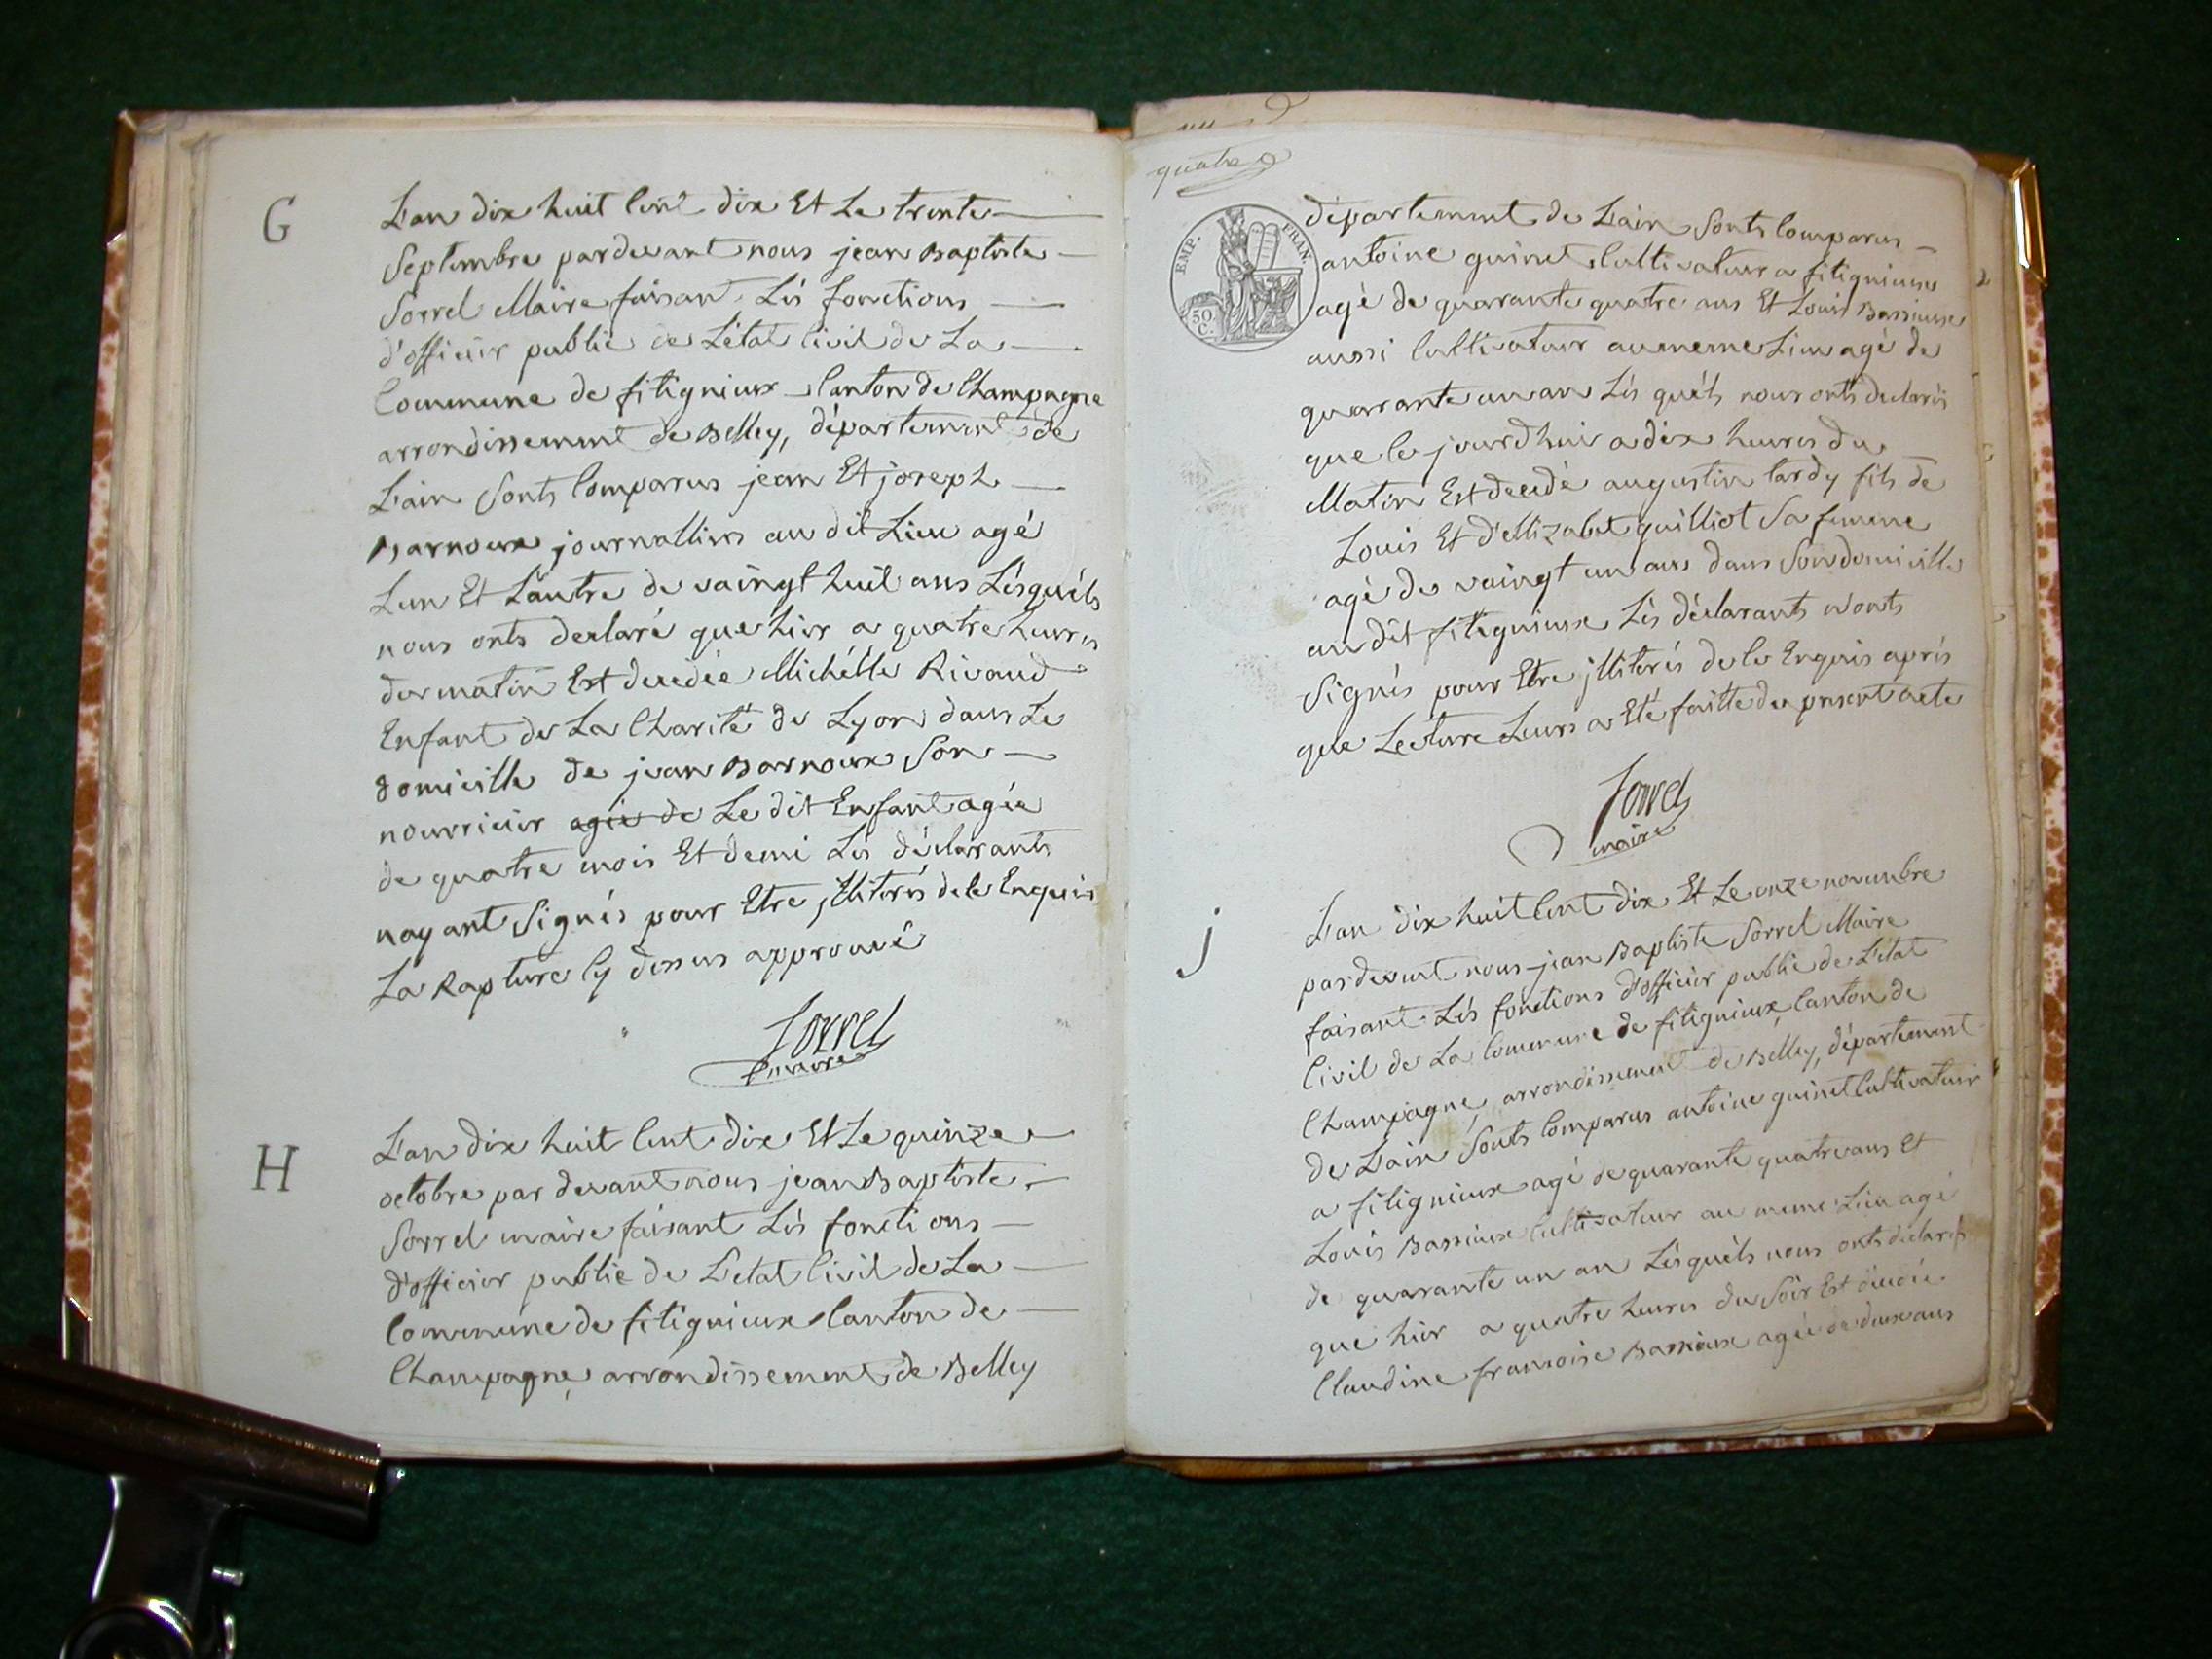 G
L'an dix huit Cent dix Et Le trente
Septembre pardevant nous jean Baptiste
Sorrel Maire faisant Lés fonctions
d'officiér public de L'état Civil de La
Commune de fitignieux Canton de Champagne
arrondissement de Belley, département de
L'ain Sonts Comparus jean Et joseph
Barnoux journalliers au dit Lieu agé
Lun Et L'autre de vaingt huit ans Lésquéls
nous onts declaré que hier a quatre heures
du matin Est decedée Michélle Rivaud
Enfant de La Charité de Lyon dans Le
domicille de jean Barnoux Son
nourricier agée de Le dit Enfant agée
de quatre mois Et demi Lés déclarants
nayant Signés pour Etre jllitérés de le Enquis
La Rapture Cy dessus approuvé
Sorrel
maire
H
L'an dix huit Cent dix Et Le quinze
octobre par devant nous jean Baptiste
Sorrel maire faisant Lés fonctions
d'officier public de L'etat Civil de La
Commune de fitignieux Canton de
Champagne arrondissement de Belley
quatre
EMP. FRAN.
50 C.
département de L'ain Sonts Comparus
antoine guinet Cultivateur a fitignieux
agé de quarante quatre ans Et Louis Bassieux
aussi Cultivateur au meme Lieu agé de
quarante un an Lés quéls nous onts declarés
que Ce jourd'hui a dix heures du
Matin Est decedé augustin tardy fils de
Louis Et d'Ellizabet guilliot Sa femme
agé de vaingt un ans dans Son domicille
au dit fitignieux Lés déclarants n'onts
Signés pour Etre jllitérés de le Enquis aprés
que Lecture Leurs a Eté faitte du present acte
Sorrel
maire
j
L'an dix huit Cent dix Et Le onze novembre
pardevant nous jean Baptiste Sorrel Maire
faisant Lés fonctions d'officiér public de L'état
Civil de La Commune de fitignieux Canton de
Champagne, arrondissement de Belley, département
de L'ain Sonts Comparus antoine guinet Cultivateur
a fitignieux agé de quarante quatre ans Et
Louis Bassieux Cultivateur au meme Lieu agé
de quarante un an Lésquéls nous onts declarés
que hier a quatre heures du Soir Est decedée
Claudine francoise Bassieux agée de deux ans